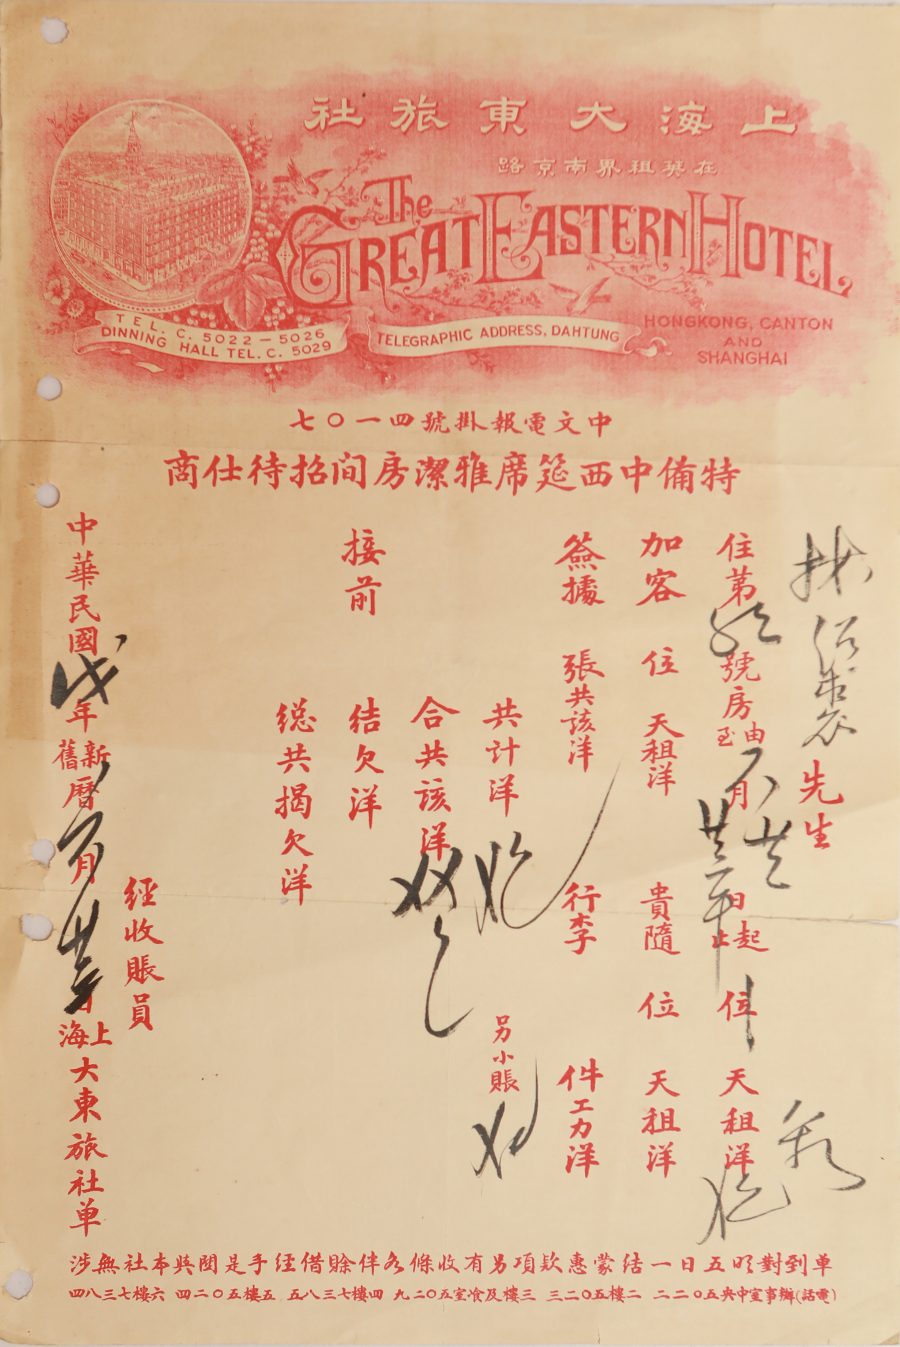 上海大東旅社
在英租界南京路
The
GREAT EASTERN HOTEL
TEL. C. 5022 — 5026
DINNING HALL TEL. C. 5029
TELEGRAPHIC ADDRESS, DAHTUNG
HONGKONG, CANTON
AND
SHANGHAI
中文電報掛號四一〇七
特備中西筵席雅潔房間招待仕商
先生
住第 號房由至 月 日起止 位 天租洋
加客 位 天租洋 貴隨 位 天租洋
簽據 張共該洋 行李 件工力洋
共计洋 另小賬
合共該洋
接前 结欠洋
總共揭欠洋
經收賬員
中華民國 年新舊曆 月 日上海大東旅社单
單到對明五日一结蒙惠欵項另有收條各伴賒借经手是問與本社無涉
(電話)辦事室中央五〇二二 二樓五〇二三 三樓及飡室五〇二九 四樓七三八五 五樓五〇二四 六樓七三八四